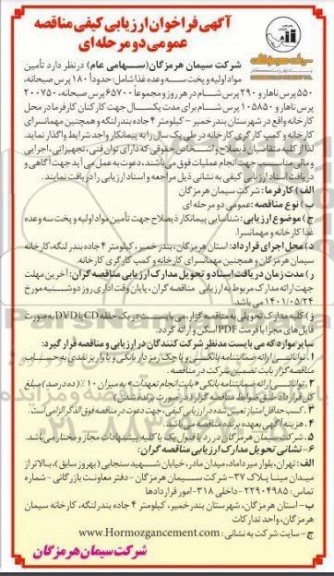 آگهی فراخوان ارزیابی کیفی مناقصه
عمومی دو مرحله ای
شرکت سیمان هرمزگان (سهامی عام) در نظر دارد تأمین
مواد اولیه و پخت سه وعده غذا شامل: حدوداً ۱۸۰ پرس صبحانه،
۵۵۰ پرس ناهار و ۲۹۰ پرس شام در هر روز و مجموعاً ۶۵۷۰۰ پرس صبحانه، ۲۰۰۷۵۰
پرس ناهار و ۱۰۵۸۵۰ پرس شام برای مدت یکسال جهت کارکنان کارفرما در محل
کارخانه واقع در شهرستان بندر خمیر - کیلومتر ۴ جاده بندر لنگه و همچنین مهمانسرای
کارخانه و کمپ کارگری کارخانه در طی یک سال را به پیمانکار واجد شرایط واگذار نماید.
لذا از کلیه متقاضیان ذیصلاح و اشخاص حقوقی که دارای توان فنی، تجهیزاتی، اجرایی
و مالی مناسب در جهت انجام عملیات فوق می باشند، دعوت به عمل می آید جهت آگاهی و
دریافت اسناد ارزیابی کیفی به نشانی ذیل مراجعه و اسناد ارزیابی را دریافت نمایند.
الف) کارفرما: شرکت سیمان هرمزگان
ب) نوع مناقصه: عمومی دو مرحله ای
ج) موضوع ارزیابی: شناسایی پیمانکار ذیصلاح جهت تأمین مواد اولیه و پخت سه وعده
غذا کارخانه و مهمانسرا.
د) محل اجرای قرارداد: استان هرمزگان، بندر خمیر، کیلومتر ۴ جاده بندر لنگه، کارخانه
سیمان هرمزگان و همچنین مهمانسرای کارخانه و کمپ کارگری کارخانه.
ر) مدت زمان دریافت اسناد و تحویل مدارک ارزیابی مناقصه گران: آخرین مهلت
جهت ارائه مدارک مربوط به ارزیابی مناقصه گران، پایان وقت اداری روز دوشنبه مورخ
۱۴۰۱/۰۵/۲۴ می باشد.
ز) کلیه مدارک تحویلی به مناقصه گزار، می بایست در یک حلقه CD یا DVD به صورت
فایل های مجزا با فرمت PDF اسکن و ارائه گردد.
سایر موارد که می بایست مدنظر شرکت کنندگان در ارزیابی و مناقصه قرار گیرد:
۱. توانائی ارائه ضمانتنامه بانکی و یا چک رمزدار بانکی و یا واریز نقدی به حساب
مناقصه گزار بابت تضمین شرکت در مناقصه.
۲. توانائی ارائه ضمانتنامه بانکی «بابت انجام تعهدات» به میزان ۱۰٪ (ده درصد) مبلغ
قرارداد طبق ضوابط مناقصه گزار (در صورت برنده شدن)
۳. کسب حداقل امتیاز تعیین شده در ارزیابی کیفی، جهت دعوت در مناقصه فوق الذکر الزامی است.
۴. هزینه آگهی بعهده برنده مناقصه می باشد.
۵. شرکت سیمان هرمزگان در رد یا قبول یک یا کلیه پیشنهادات مجاز و مختار می باشد.
۶- نشانی تحویل مدارک ارزیابی مناقصه گران:
الف- تهران، بلوار میرداماد، میدان مادر، خیابان شهید سنجابی (بهروز سابق)، بالاتر از
میدان مینا پلاک ۳۷- شرکت سیمان هرمزگان - دفتر معاونت بازرگانی - شماره
تماس: ۲۲۹۰۴۹۸۵ - داخلی ۳۱۸- امور قراردادها
ب- استان هرمزگان، شهرستان بندر خمیر، کیلومتر ۴ جاده بندر لنگه، کارخانه سیمان
هرمزگان، واحد تدارکات
ج- سایت شرکت به نشانی: www.Hormozgancement.com
شرکت سیمان هرمزگان